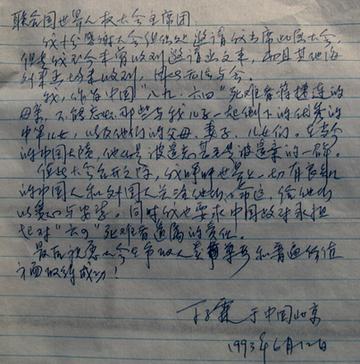 联合国世界人权大会主席团:
我十分感谢大会组织处邀请我出席此届大会,
但是我至今未曾收到邀请出文来,而且其他海
外来去均未收到,因此无法与会。
我,作为中国“八九、六四”死难者蒋捷连的
母亲,不能忘却那些与我儿子一起倒下的优秀的
中华儿女,以及他们的父母、妻子、儿女们。在当今
的中国大陆,他们是被遗忘甚至是被遗弃的一群。
值此大会召开之际,我呼吁世界上一切有良知
的中国人和外国人关注他们的命运,给他们
以爱心与。同时我也要求中国政府承担
起对“六四”死难者遗属的责任。
最后祝愿大会在市以人尊严和普遍价值
方面取得成功!
丁子霖于中国北京
1993年6月12日